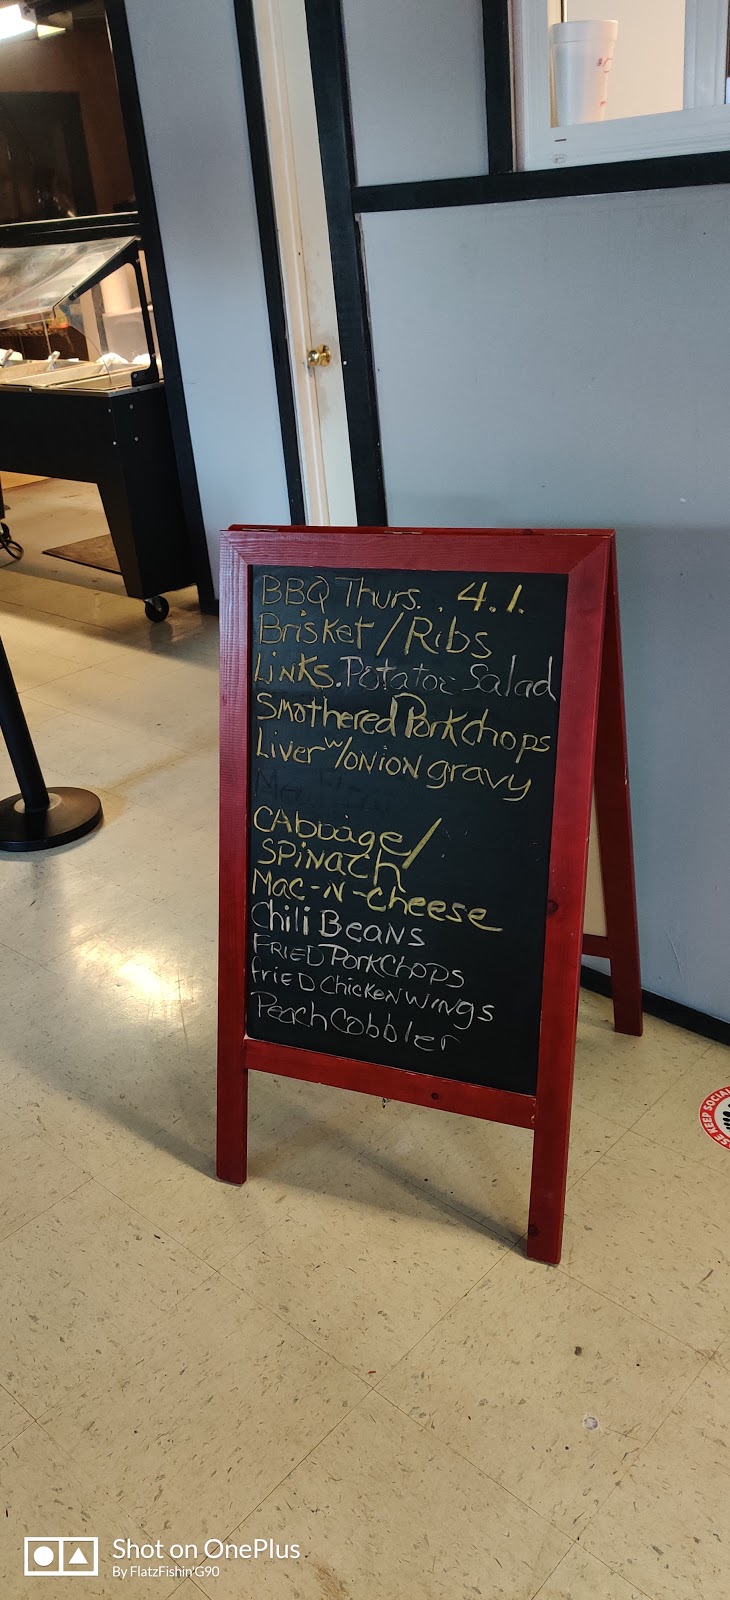 BBQ Thurs. . 4.1.
Brisket/Ribs
Links. Potatoe Salad
Smothered Pork Chops
Liver w/onion gravy
CAbbage/
SPiNach
Mac-N-cheese
Chili BeaNS
FRIED PorkChops
frieD ChickeN wings
Peach Cobbler
KEEP SOCIAL
Shot on OnePlus
By FlatzFishin'G90